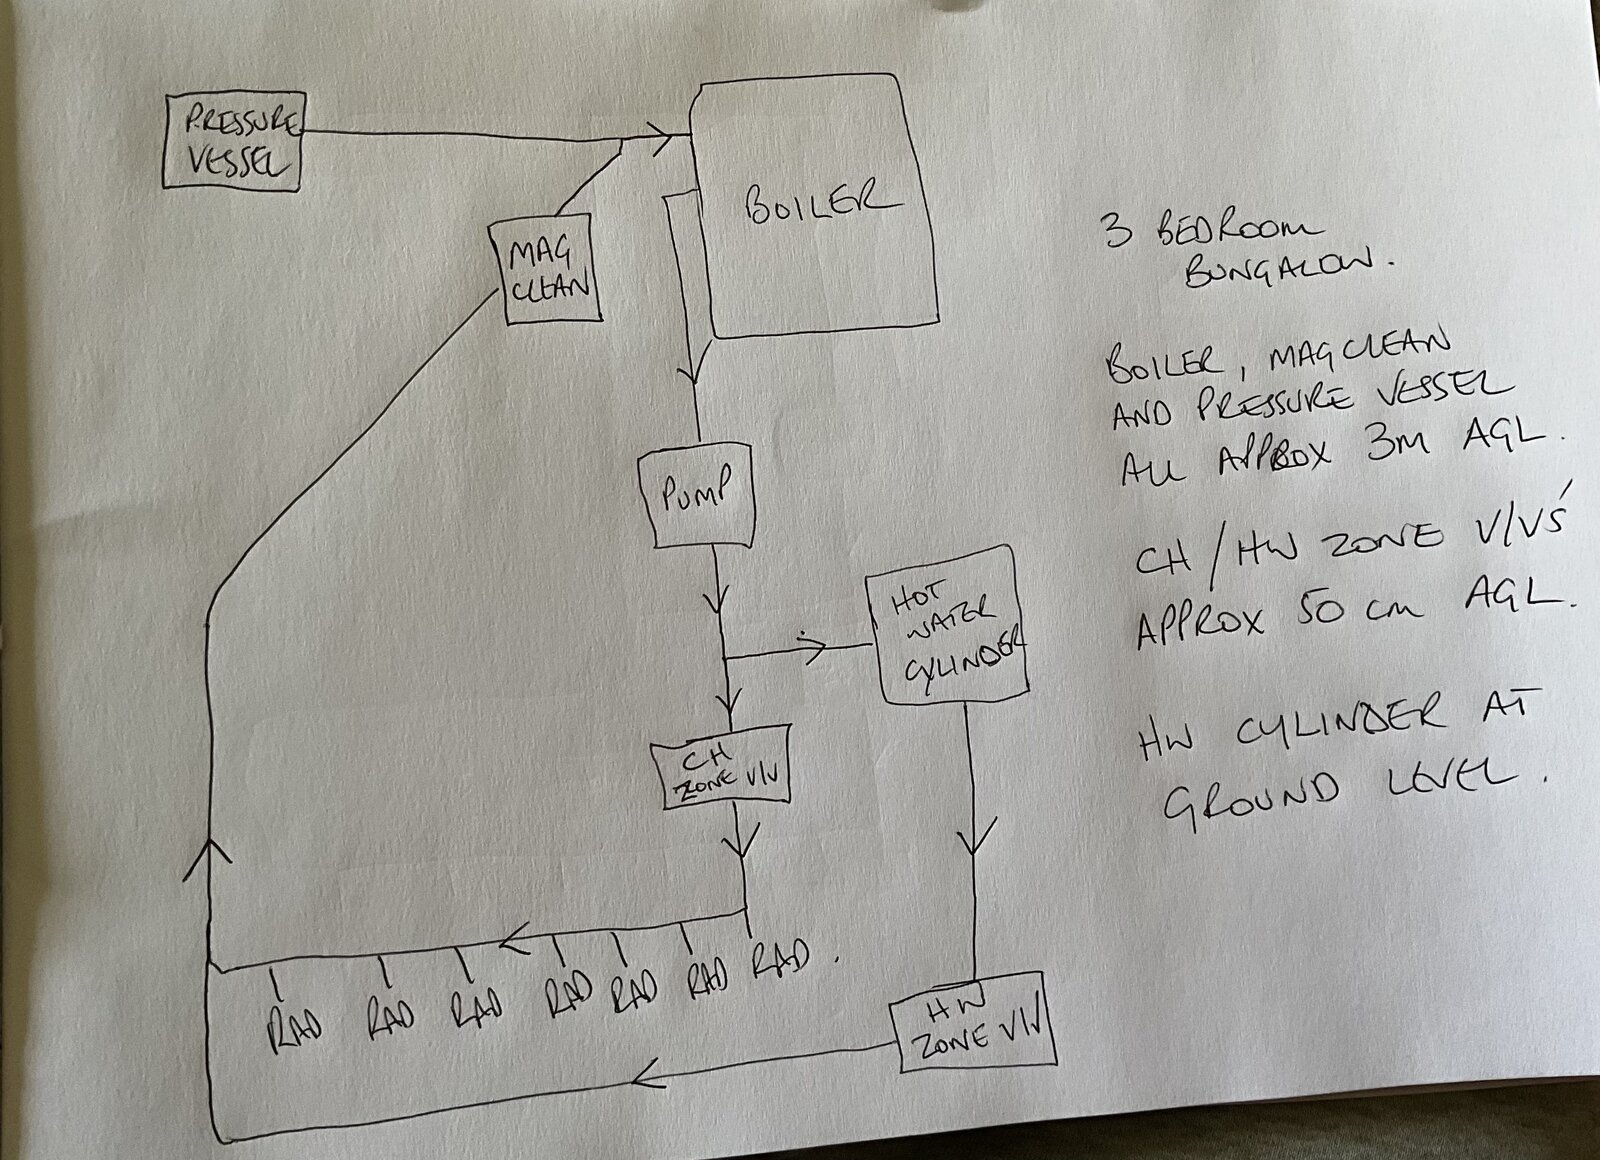 PRESSURE
VESSEL
BOILER
MAG
CLEAN
PUMP
HOT
WATER
CYLINDER
CH
ZONE V/V
RAD
RAD
RAD
RAD
RAD
RAD
RAD.
HW
ZONE V/V
3 BEDROOM
BUNGALOW.
BOILER, MAGCLEAN
AND PRESSURE VESSEL
ALL APPROX 3M AGL.
CH/HW ZONE V/V'S
APPROX 50 cm AGL.
HW CYLINDER AT
GROUND LEVEL.